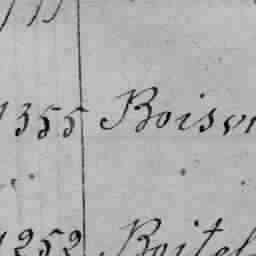 1355 Boison
1252 Boitel